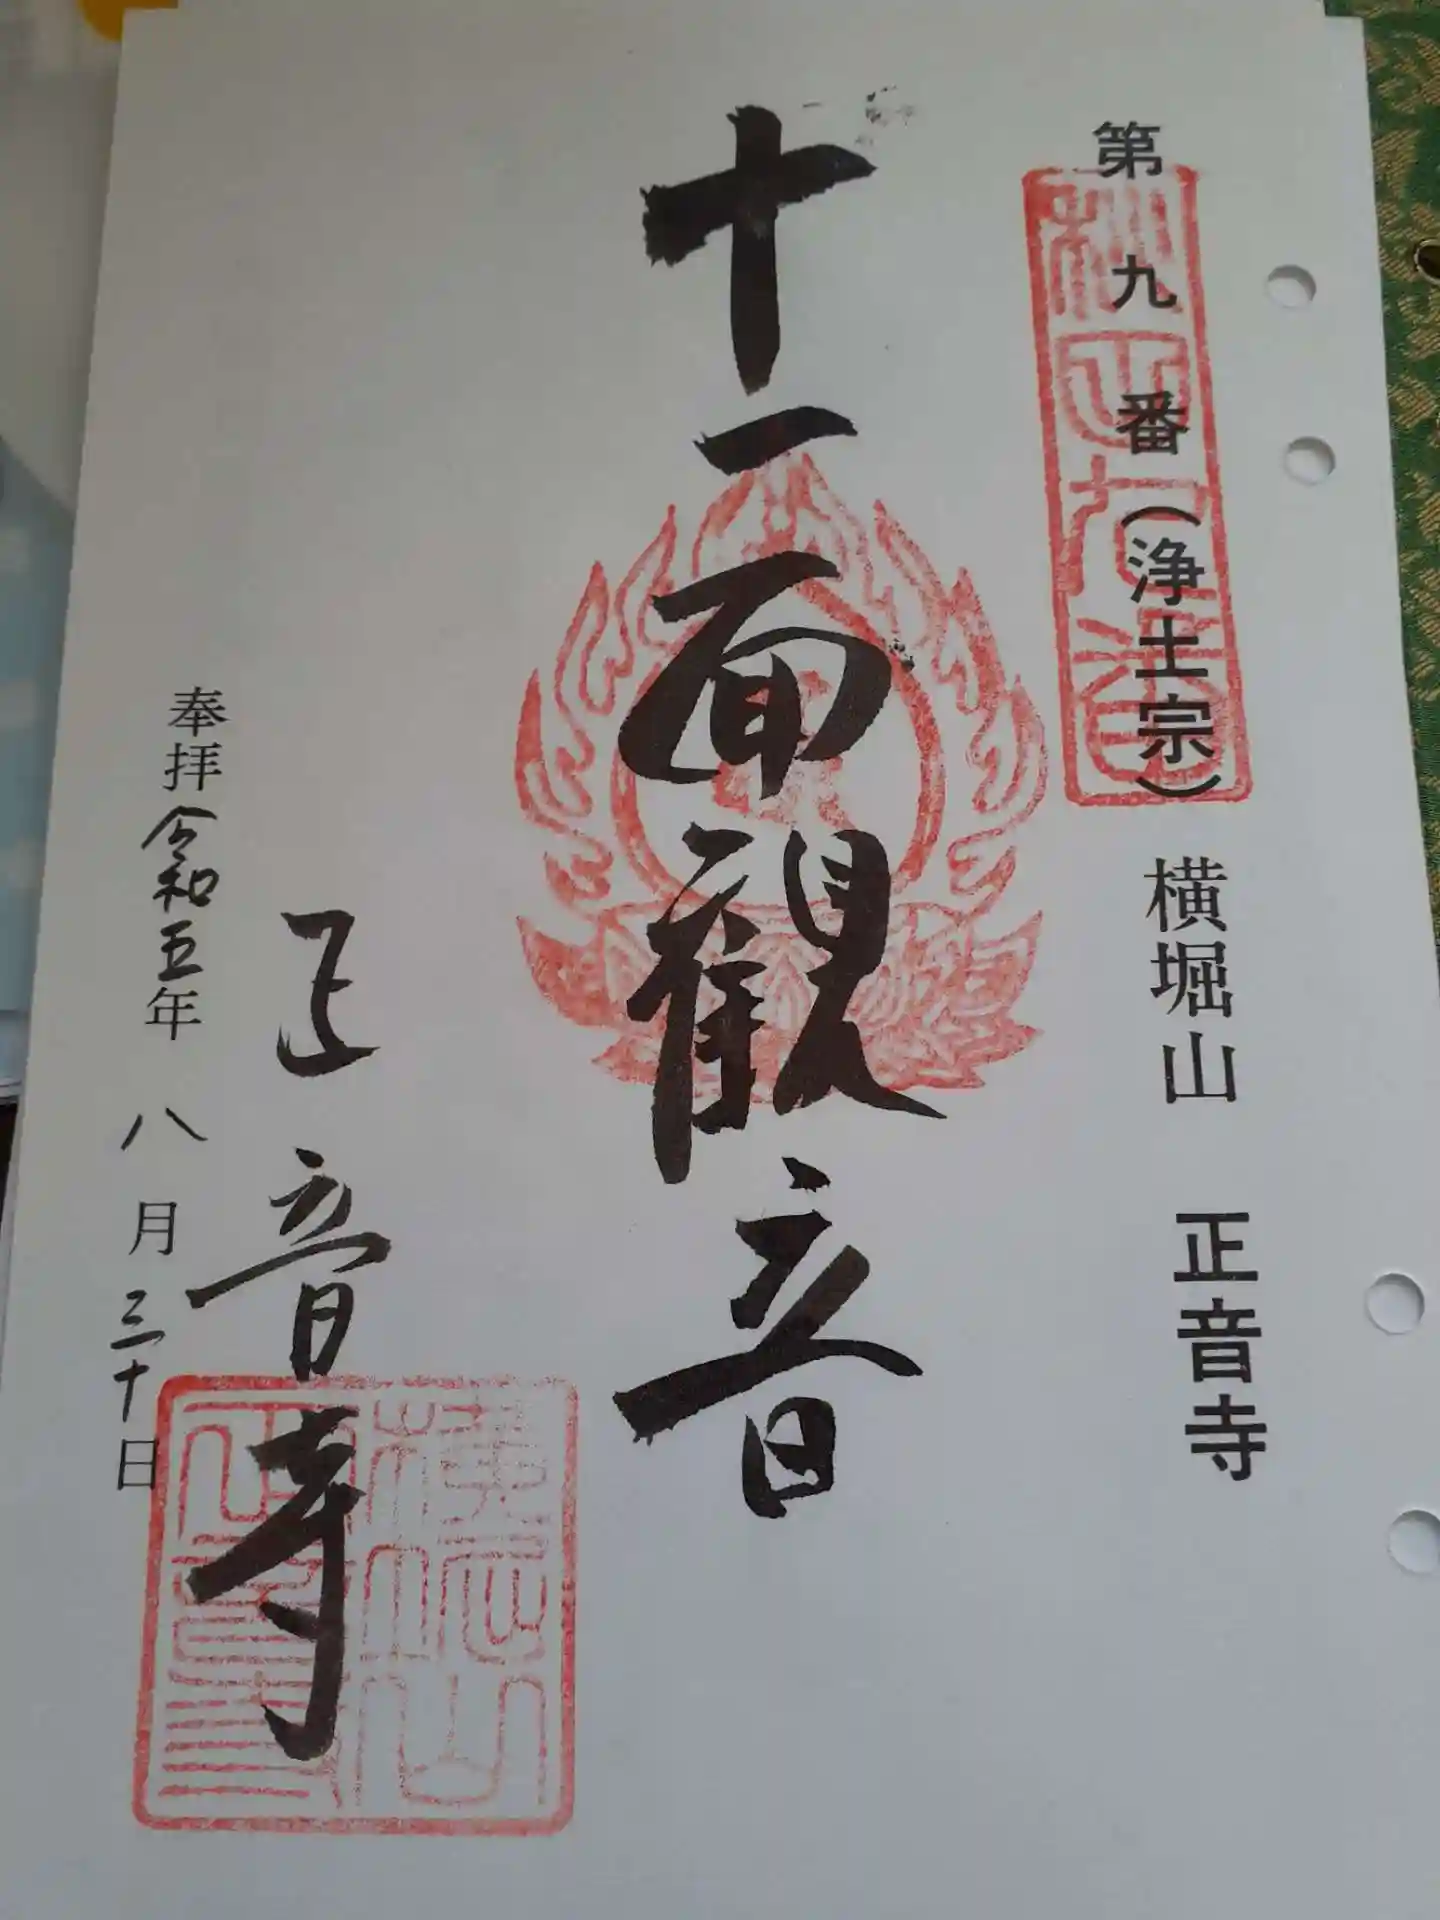 第九番(浄土宗) 横堀山 正音寺
十一面観音
正音寺
奉拝 令和五年 八月三十日
横堀山
正音寺